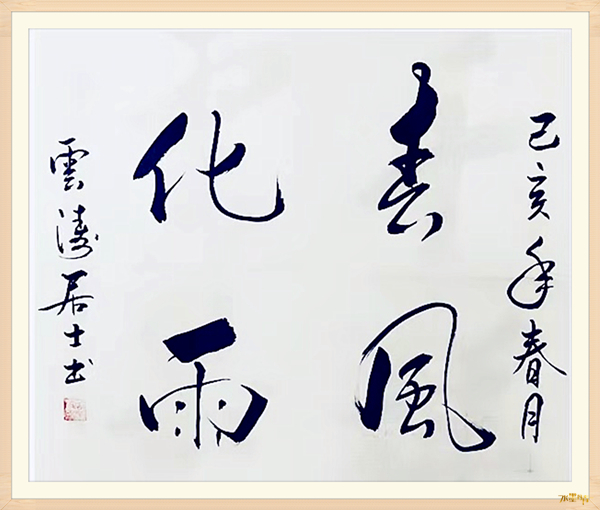 己亥年春月
春風
化雨
雲濤居士书